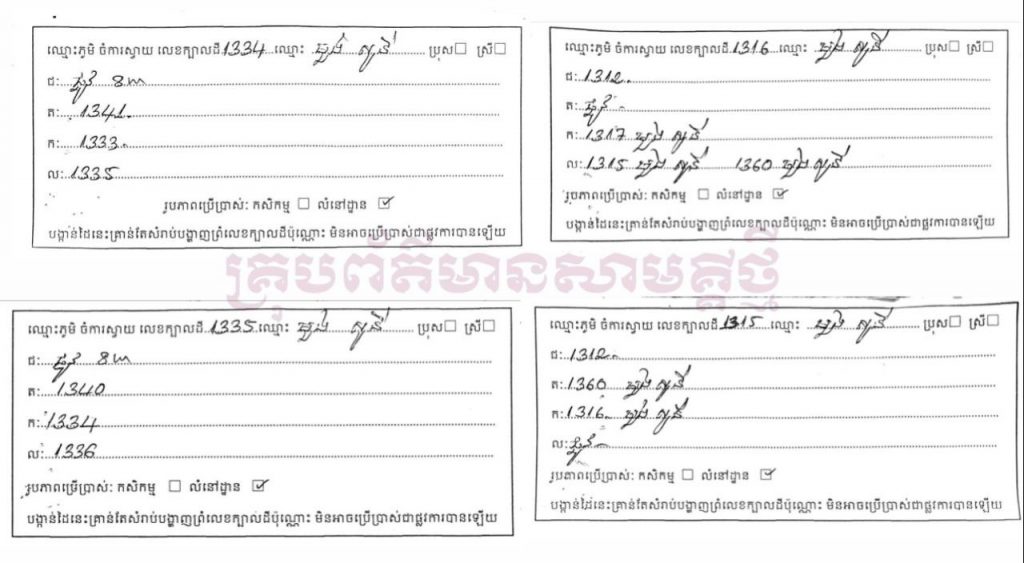 ឈ្មោះភូមិ ចំការស្វាយ លេខក្បាលដី 1334 ឈ្មោះ ប្រុស☐ ស្រី☐
ជ: ផ្លូវ 8m
ត: 1341.
ក: 1333.
ល: 1335
រូបភាពប្រើប្រាស់: កសិកម្ម ☐ លំនៅដ្ឋាន ☑
បង្កាន់ដៃនេះគ្រាន់តែសំរាប់បង្ហាញព្រំលេខក្បាលដីប៉ុណ្ណោះ មិនអាចប្រើប្រាស់ជាផ្លូវការបានឡើយ
ឈ្មោះភូមិ ចំការស្វាយ លេខក្បាលដី 1316 ឈ្មោះ ប្រុស☐ ស្រី☐
ជ: 1312.
ត: ផ្លូវ
ក: 1317
ល: 1315 1360
រូបភាពប្រើប្រាស់: កសិកម្ម ☐ លំនៅដ្ឋាន ☑
បង្កាន់ដៃនេះគ្រាន់តែសំរាប់បង្ហាញព្រំលេខក្បាលដីប៉ុណ្ណោះ មិនអាចប្រើប្រាស់ជាផ្លូវការបានឡើយ
គ្រុបព័ត៌មានសាមគ្គីថ្មី
ឈ្មោះភូមិ ចំការស្វាយ លេខក្បាលដី 1335 ឈ្មោះ ប្រុស☐ ស្រី☐
ជ: ផ្លូវ 8m
ត: 1340
ក: 1334
ល: 1336
រូបភាពប្រើប្រាស់: កសិកម្ម ☐ លំនៅដ្ឋាន ☑
បង្កាន់ដៃនេះគ្រាន់តែសំរាប់បង្ហាញព្រំលេខក្បាលដីប៉ុណ្ណោះ មិនអាចប្រើប្រាស់ជាផ្លូវការបានឡើយ
ឈ្មោះភូមិ ចំការស្វាយ លេខក្បាលដី 1315 ឈ្មោះ ប្រុស☐ ស្រី☐
ជ: 1312.
ត: 1360
ក: 1316.
ល: ផ្លូវ
រូបភាពប្រើប្រាស់: កសិកម្ម ☐ លំនៅដ្ឋាន ☑
បង្កាន់ដៃនេះគ្រាន់តែសំរាប់បង្ហាញព្រំលេខក្បាលដីប៉ុណ្ណោះ មិនអាចប្រើប្រាស់ជាផ្លូវការបានឡើយ